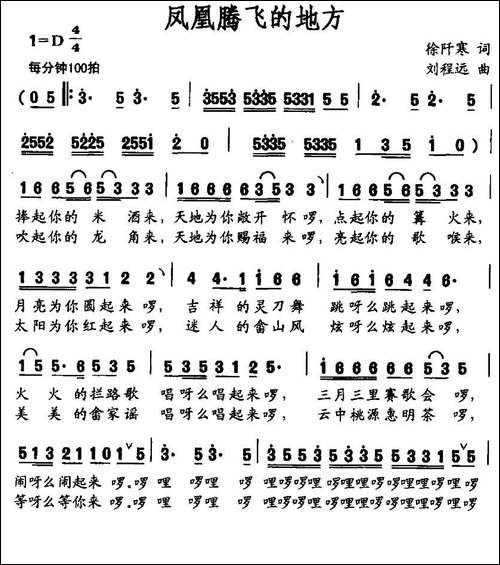 凤凰腾飞的地方
1=D 4/4
每分钟100拍
徐阡寒 词
刘程远 曲
(0 5 ‖: 3· 5 3· 5 | 3553 5335 5331 5 5 | 2· 5 2· 5 |
2552 5225 2551 2 0 | 5335 5335 1 3 5 1 0 ) |
1 6 6 5 6 5 3 3 3 | 1 6 6 6 6 6 3 5 3 3 | 1 6 6 5 6 5 3 3 3 |
捧起你的 米 酒来,天地为你敞开 怀 啰,点起你的 篝 火来,
吹起你的 龙 角来,天地为你赐福 来 啰,亮起你的 歌 喉来,
1 3 3 3 3 3 1 2 2 | 4 4· 1 i 6 6 | 5 6 1 6 5 4 4 6· |
月亮为你圆起来 啰, 吉 祥 的灵刀舞 跳呀么跳起来 啰,
太阳为你红起来 啰, 迷 人 的畲山风 炫呀么炫起来 啰,
1 5 5· 6 5 3 5 | 5 3 5 3 1 2 5· | 1 6 6 6 6 6 5 3 5 |
火 火 的拦路歌 唱呀么唱起来 啰, 三月三里赛歌会 啰,
美 美 的畲家谣 唱呀么唱起来 啰, 云中桃源惠明茶 啰,
5 1 3 2 1 1 0 1 5 | 3· 5 3· 5 | 3 5 5 3 5 3 3 5 5 3 3 1 5 5 |
闹呀么闹起来 啰。啰 哩 啰哩 哩啰哩啰哩哩啰哩哩哩啰哩
等呀么等你来 啰。啰 哩 啰哩 哩啰哩啰哩哩啰哩哩哩啰哩